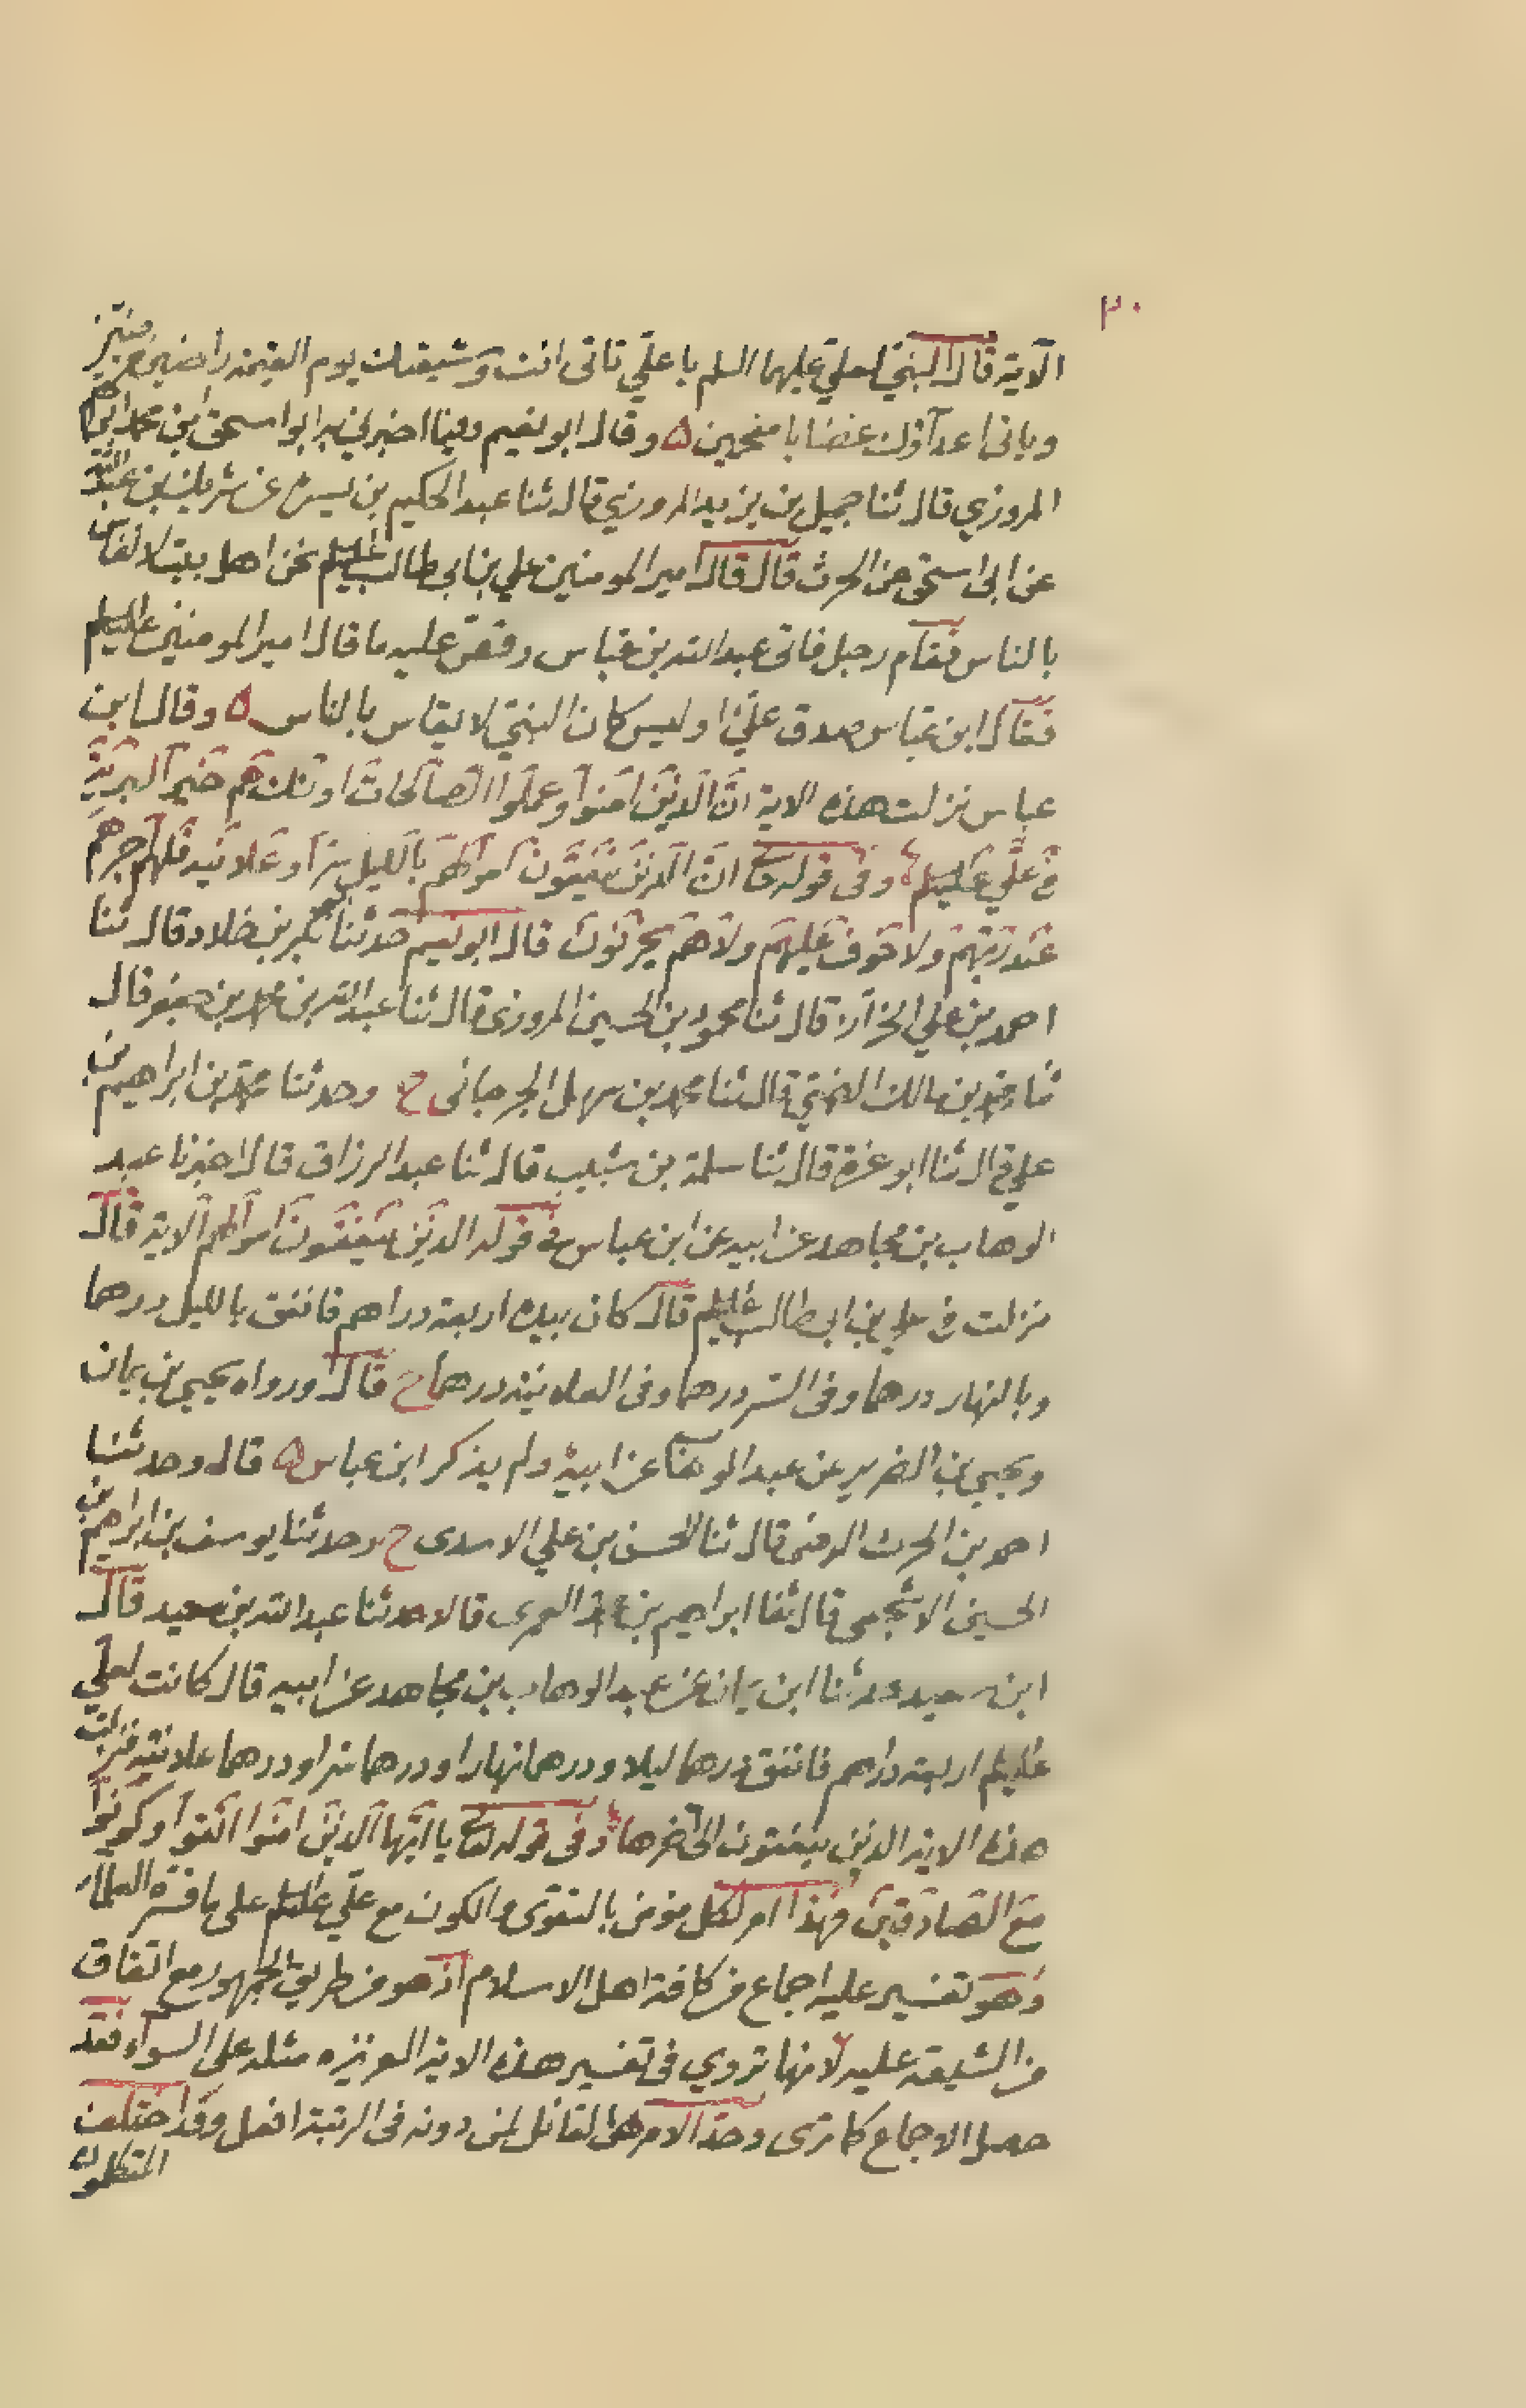 ٣٠
الآية قال النبي لعلي عليهما السلم يا علي تاتى انت وشيعتك يوم القيمة راضين مرضيين
وياتى اعداؤك غضابا مقمحين ٥ وقال ابو نعيم فيما اخبرني به ابو اسحق ابن محمد ابراهيم
المروزي قال ثنا جميل بن يزيد المروزي قال ثنا عبد الحكيم بن ميسرة عن شريك بن عبد الله
عن ابى اسحق عن الحرث قال قال امير المومنين علي بن ابى طالب عليه السلم نحن اهل بيت لا نقاس
بالناس فقام رجل فاتى عبد الله بن عباس وقص عليه ما قال امير المومنين عليه السلم
فقال ابن عباس صدق علي اوليس كان النبي لا يقاس بالناس ٥ وقال ابن
عباس نزلت هذه الاية ان الذين امنوا وعملوا الصالحات اولئك هم خير البرية
في علي عليه السلم وفى قوله تعا ان الذين ينفقون اموالهم بالليل سرا وعلانية فلهم اجرهم
عند ربهم ولا خوف عليهم ولا هم يحزنون قال ابو نعيم حدثنا ابو بكر بن خلاد قال ثنا
احمد بن علي الخزار قال ثنا محمود بن الحسين المروزى قال ثنا عبد الله بن محمد بن جعفر قال
ثنا محمد بن مالك الضبي قال ثنا محمد بن سهل الجرجانى ح وحدثنا محمد بن ابراهيم بن
علي قال ثنا ابو عروبة قال ثنا سلمة بن شبيب قال ثنا عبد الرزاق قال اخبرنا عبد
الوهاب بن مجاهد عن ابيه عن ابن عباس في قوله الذين ينفقون اموالهم الاية قال
نزلت في علي بن ابى طالب عليه السلم قال كان بيده اربعة دراهم فانفق بالليل درهما
وبالنهار درهما وفى السر درهما وفى العلانية درهما ح قال ورواه يحيى بن يمان
ويحيى بن الضرير عن عبد الوهاب عن ابيه ولم يذكر ابن عباس ٥ قال وحدثنا
احمد بن الحرث قال ثنا الحسن بن علي الاسدى ح وحدثنا يوسف بن ابراهيم بن
الحسين الاشجعى قال ثنا ابراهيم بن محمد العمرى قالا حدثنا عبد الله بن سعيد قال
ابن سعيد حدثنا ابن يمان عن عبد الوهاب بن مجاهد عن ابيه قال كانت لعلي
عليه السلم اربعة دراهم فانفق درهما ليلا ودرهما نهارا ودرهما سرا ودرهما علانية فنزلت
هذه الاية الذين ينفقون الى اخرها وفى قوله تعا يا ايها الذين امنوا اتقوا الله وكونوا
مع الصادقين فهذا امر لكل مؤمن بالتقوى والكون مع علي عليه السلم على ما فسره العلماء
وهو تفسير عليه اجماع من كافة اهل الاسلام اذ هو من طريق الجمهور مع اتفاق
من الشيعة عليه لانها تروي فى تفسير هذه الاية العزيزه مثله على السواء فقد
حصل الاجماع كما ترى وحد الامر هو القائل لمن دونه فى الرتبة افعل وقد اختلف
المتكلمون